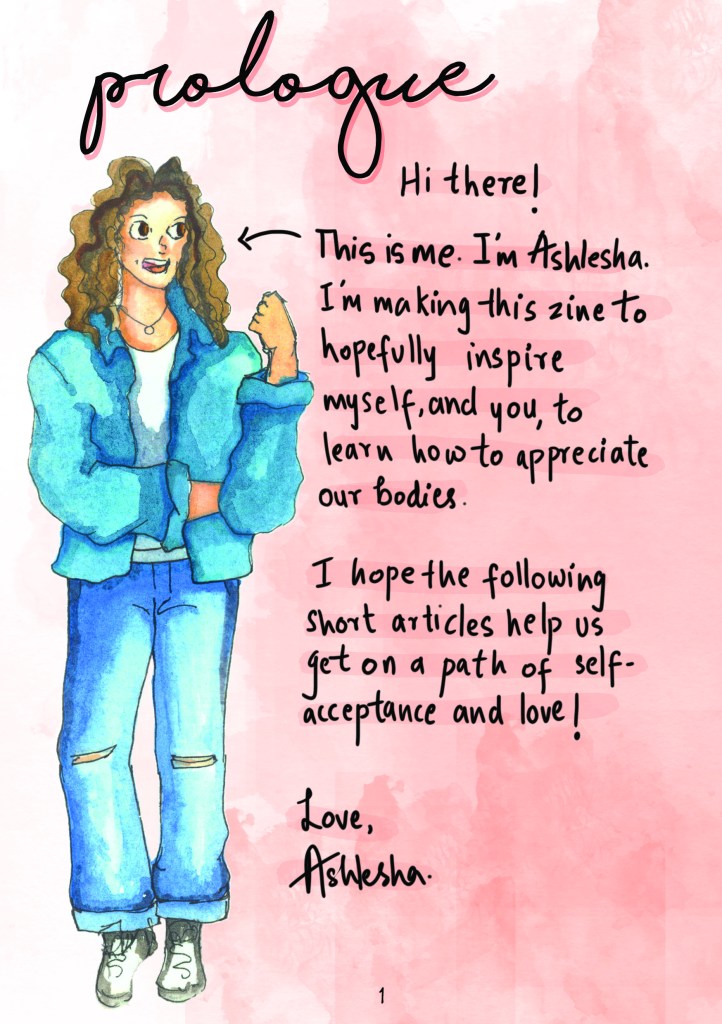 prologue
Hi there!
This is me. I'm Ashlesha.
I'm making this zine to
hopefully inspire
myself, and you, to
learn how to appreciate
our bodies.
I hope the following
short articles help us
get on a path of self-
acceptance and love!
Love,
Ashlesha.
1